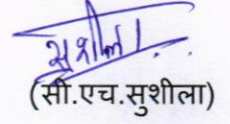 सुशीला
(सी.एच.सुशीला)